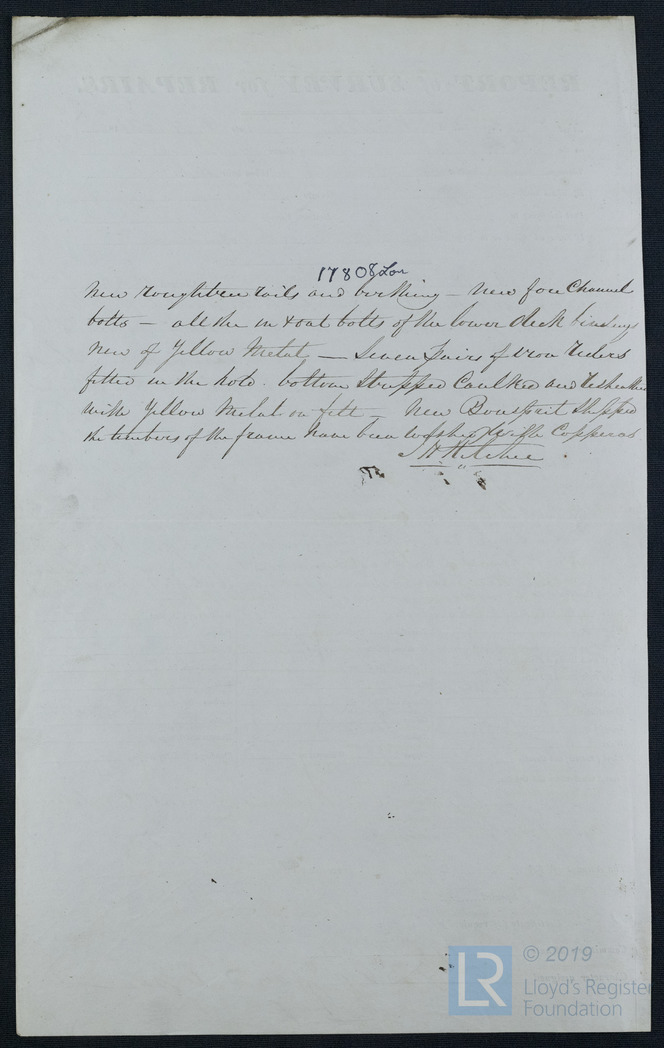 17808 Lon
New roughtree rails and berthing – New fore Channel
bolts – all the in & out bolts of the lower deck bindings
New of Yellow Metal – Seven Pairs of iron riders
fitted in the hold. bottom Stripped Caulked and
with Yellow Metal on felt – New Bowsprit Shipped
the timbers of the frame have been washed with Copperas
REPORT of SURVEY for REPAIRS
LR © 2019
Lloyd's Register
Foundation